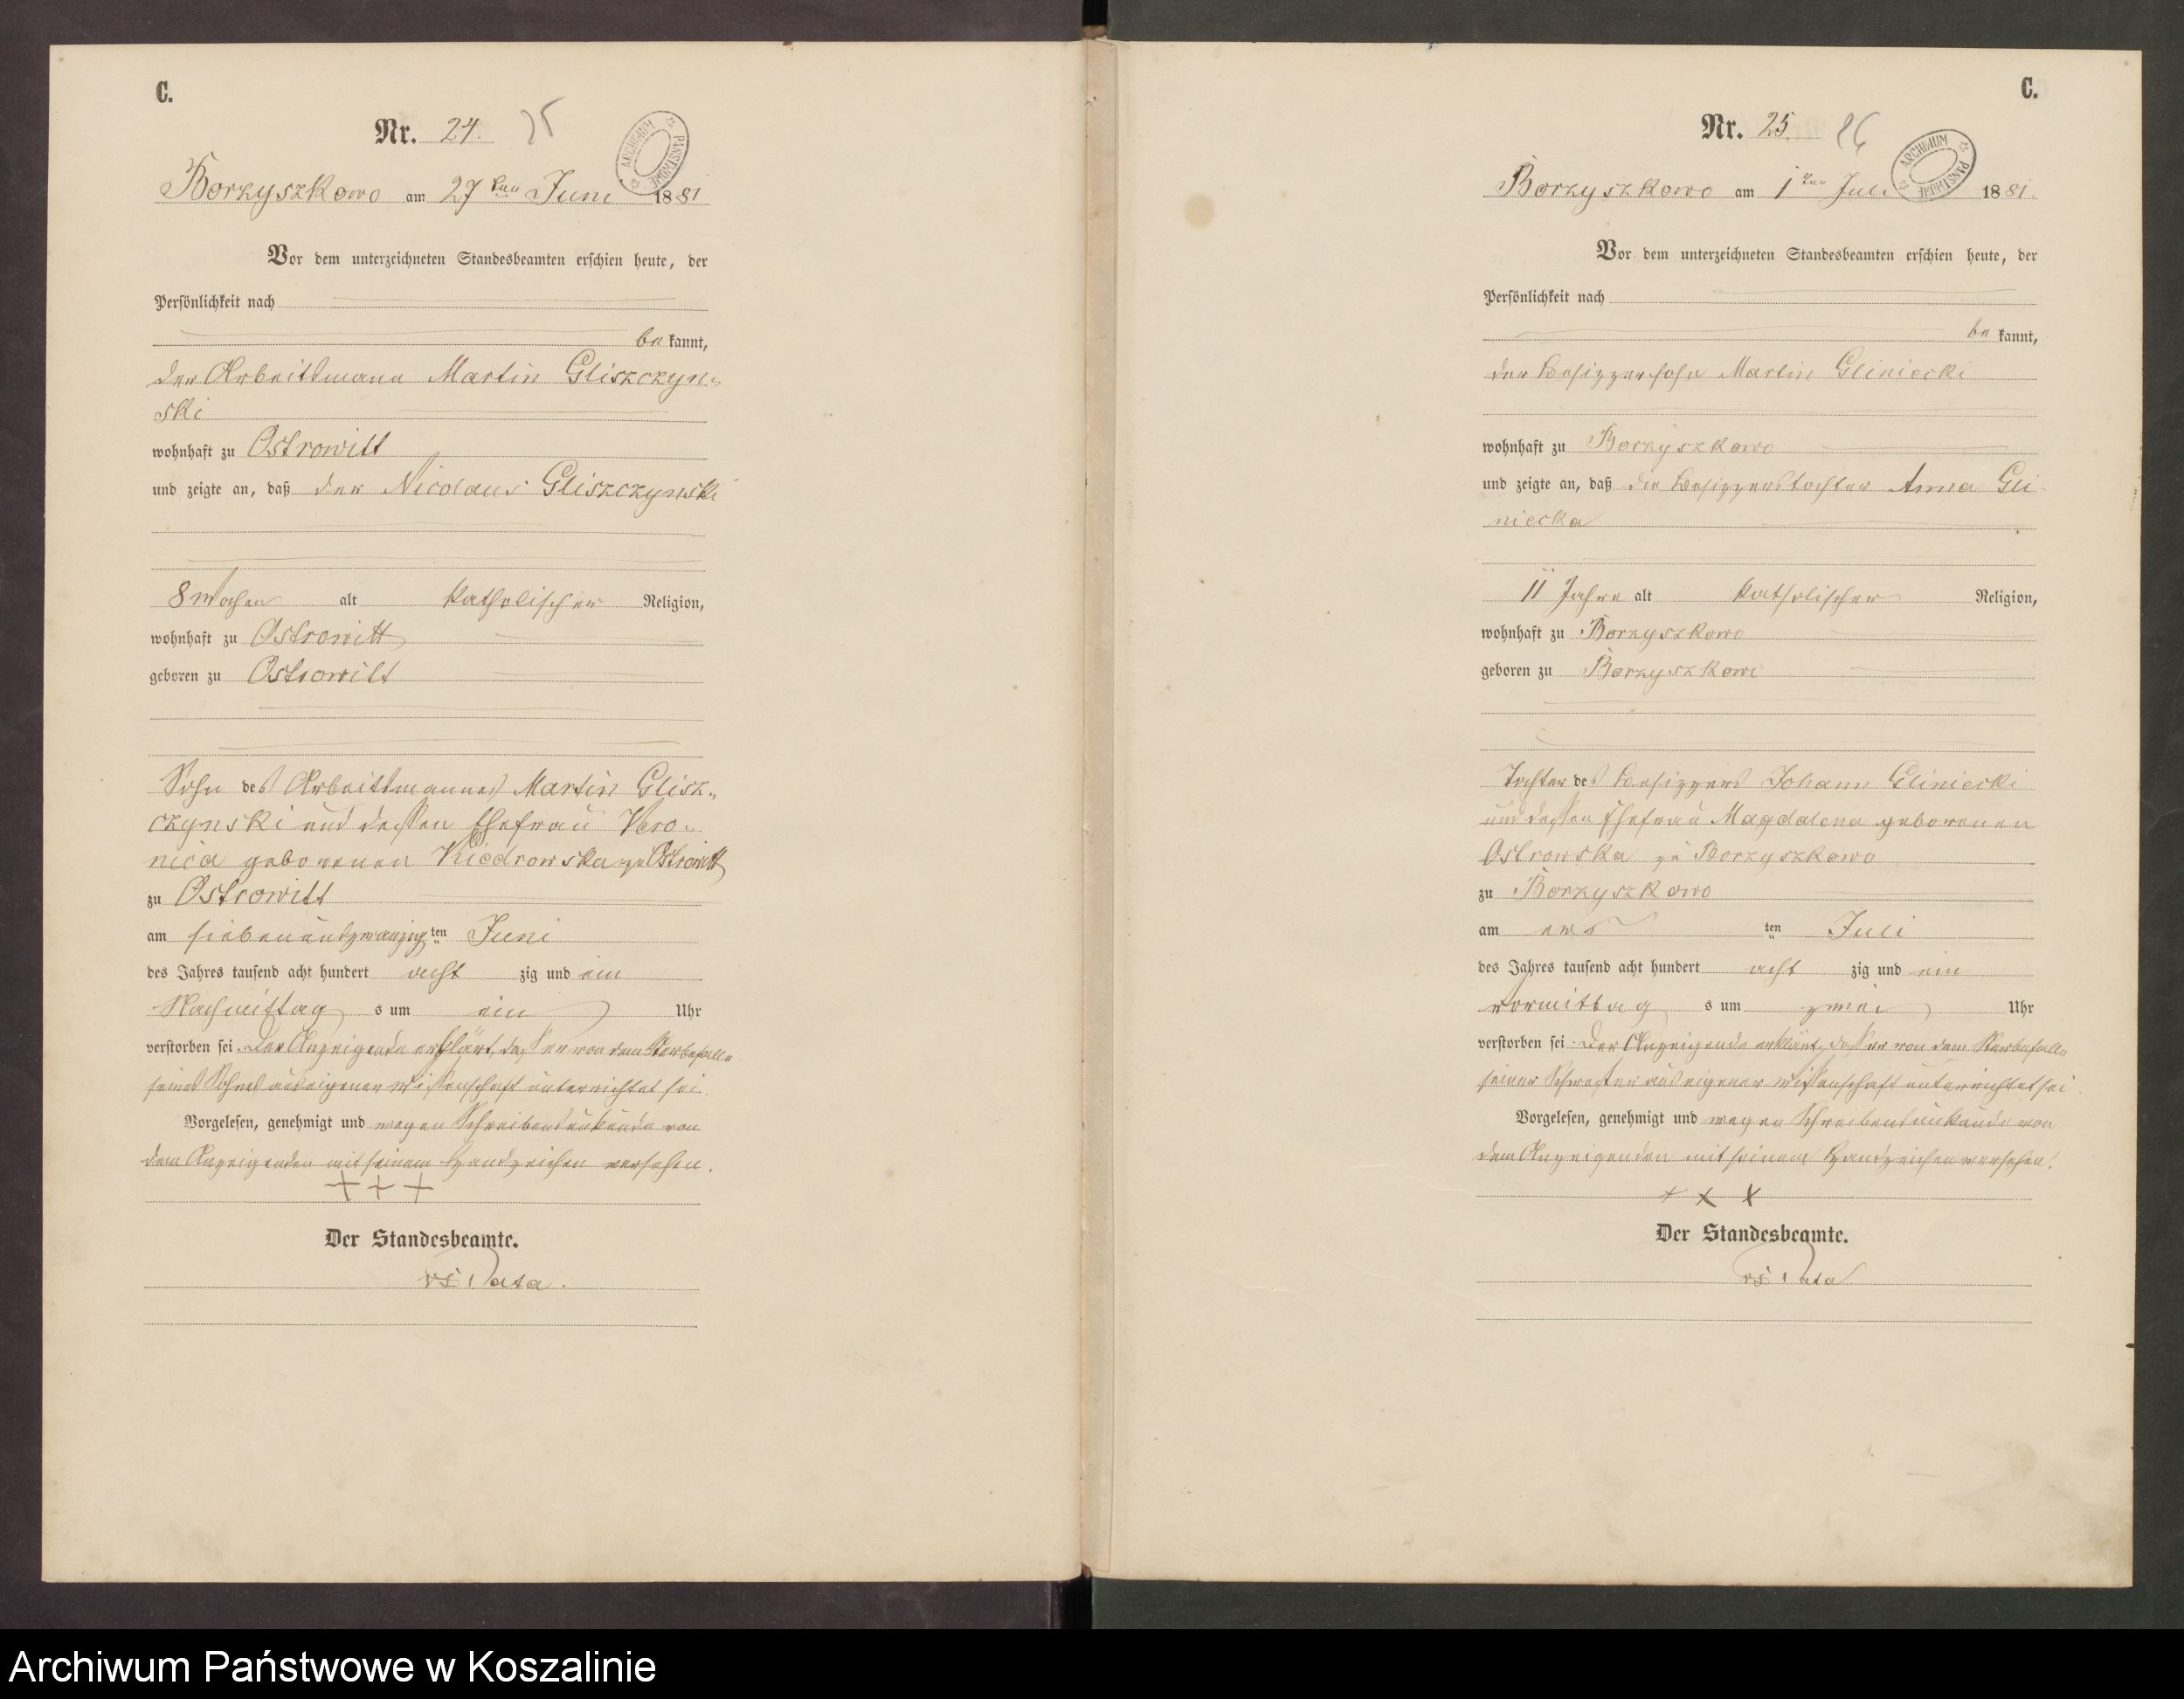 C.
Nr. 24. 25
ARCHIWUM PAŃSTWOWE
Borzyszkowo am 27ten Juni 1881
Vor dem unterzeichneten Standesbeamten erschien heute, der
Persönlichkeit nach
bekannt,
der Arbeitsmann Martin Gliszczyn-
ski
wohnhaft zu Ostrowitt
und zeigte an, daß der Nicolaus Gliszczynski
8 Wochen alt katholischer Religion,
wohnhaft zu Ostrowitt
geboren zu Ostrowitt
Sohn des Arbeitsmannes Martin Glisz-
czynski und dessen Ehefrau Vero-
nica geborenen Kiedrowska zu Ostrowitt
zu Ostrowitt
am siebenundzwanzigten Juni
des Jahres tausend acht hundert achtzig und ein
Nachmittags um ein Uhr
verstorben sei. Der Anzeigende erklärt, daß er von dem Sterbefalle
seines Sohnes aus eigener Wissenschaft unterrichtet sei.
Vorgelesen, genehmigt und wegen Schreibensunkunde von
dem Anzeigenden mit seinem Handzeichen versehen.
+ + +
Der Standesbeamte.
C.
Nr. 25. 26
ARCHIWUM PAŃSTWOWE
Borzyszkowo am 1ten Juli 1881.
Vor dem unterzeichneten Standesbeamten erschien heute, der
Persönlichkeit nach
bekannt,
der Besitzersohn Martin Gliniecki
wohnhaft zu Borzyszkowo
und zeigte an, daß die Besitzerstochter Anna Gli-
niecka
11 Jahre alt katholischer Religion,
wohnhaft zu Borzyszkowo
geboren zu Borzyszkowo
Tochter des Besitzers Johann Gliniecki
und dessen Ehefrau Magdalena geborenen
Ostrowska zu Borzyszkowo
zu Borzyszkowo
am ersten Juli
des Jahres tausend acht hundert achtzig und ein
vormittags um zwei Uhr
verstorben sei. Der Anzeigende erklärt, daß er von dem Sterbefalle
seiner Schwester aus eigener Wissenschaft unterrichtet sei.
Vorgelesen, genehmigt und wegen Schreibensunkunde von
dem Anzeigenden mit seinem Handzeichen versehen.
x x x
Der Standesbeamte.
Archiwum Państwowe w Koszalinie